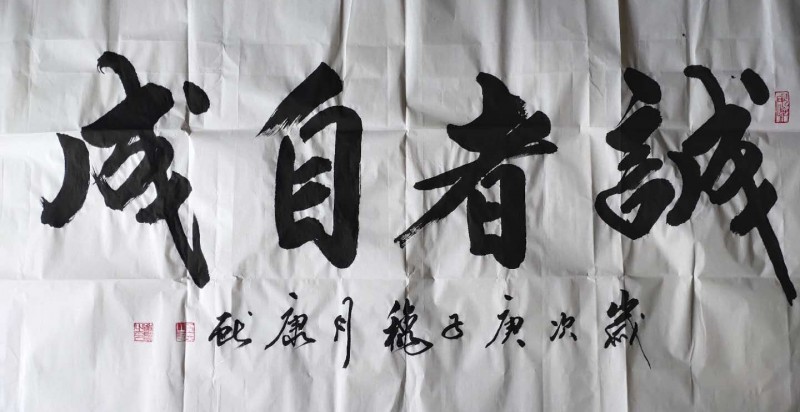 誠者自成
歲次庚子穐月康